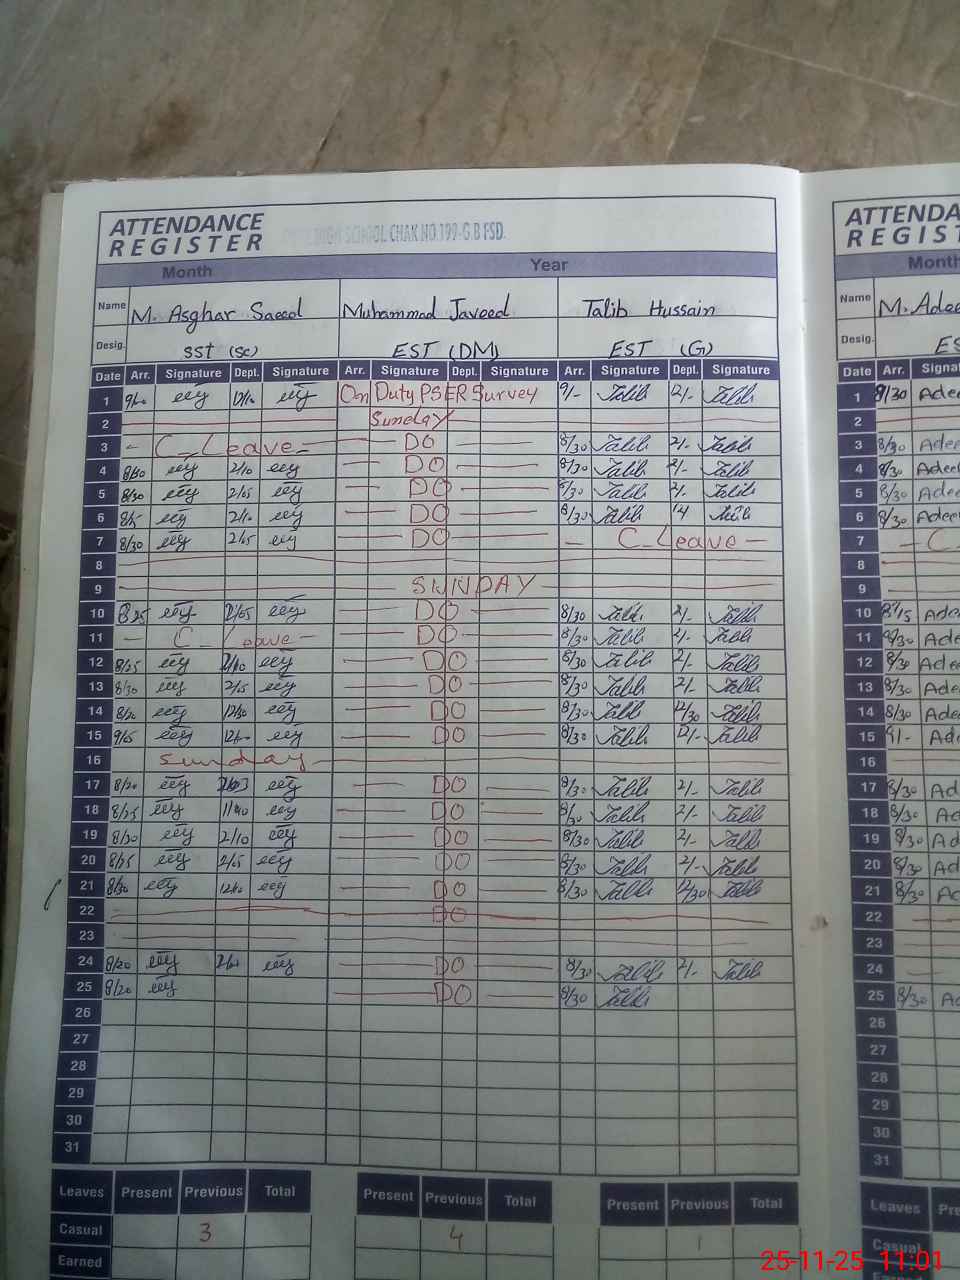 ATTENDANCE
REGISTER
HIGH SCHOOL CHAK NO.199-G.B FSD.
Month Year
Name M. Asghar Saeed Muhammad Javeed Talib Hussain
Desig. SST (Sc) EST (DM) EST (G)
Date Arr. Signature Dept. Signature Arr. Signature Dept. Signature Arr. Signature Dept. Signature
1 On Duty PSER Survey 9/- Talib 12/- Talib
2 Sunday
3 - C_Leave - DO 8/30 Talib 2/- Talib
4 8/30 2/10 DO 8/30 Talib 2/- Talib
5 8/30 2/05 DO 8/30 Talib 2/- Talib
6 2/10 DO 8/30 Talib Talib
7 8/30 2/05 DO - C_Leave -
8
9 SUNDAY
10 8/25 2/05 DO 8/30 Talib 2/- Talib
11 - C_Leave - DO 8/30 Talib 2/- Talib
12 8/25 DO 8/30 Talib 2/- Talib
13 8/30 2/05 DO 8/30 Talib 2/- Talib
14 8/20 12/30 DO 8/30 Talib 12/30 Talib
15 DO 8/30 Talib 12/- Talib
16 Sunday
17 8/20 DO 8/30 Talib 2/- Talib
18 8/25 DO 8/30 Talib 2/- Talib
19 8/30 2/10 DO 8/30 Talib 2/- Talib
20 8/25 2/05 DO 8/30 Talib 2/- Talib
21 8/30 DO 8/30 Talib 12/30 Talib
22 DO
23
24 8/20 DO 8/30 Talib 2/- Talib
25 8/20 DO 8/30 Talib
26
27
28
29
30
31
Leaves Present Previous Total Present Previous Total Present Previous Total
Casual 3 4 1
Earned
ATTENDA
REGIST
Month
Name M. Adee
Desig. ES
Date Arr. Signat
1 8/30 Adee
2
3 8/30 Adee
4 8/30 Adee
5 8/30 Adee
6 8/30 Adee
7 - C
8
9
10 8/15 Adee
11 8/30 Adee
12 8/30 Ade
13 8/30 Ade
14 8/30 Ade
15 9/- Ad
16
17 8/30 Ad
18 8/30 Ad
19 8/30 Ad
20 8/30 Ad
21 8/30 Ad
22
23
24
25 8/30 A
26
27
28
29
30
31
Leaves Pre
Casual
25-11-25 11:01